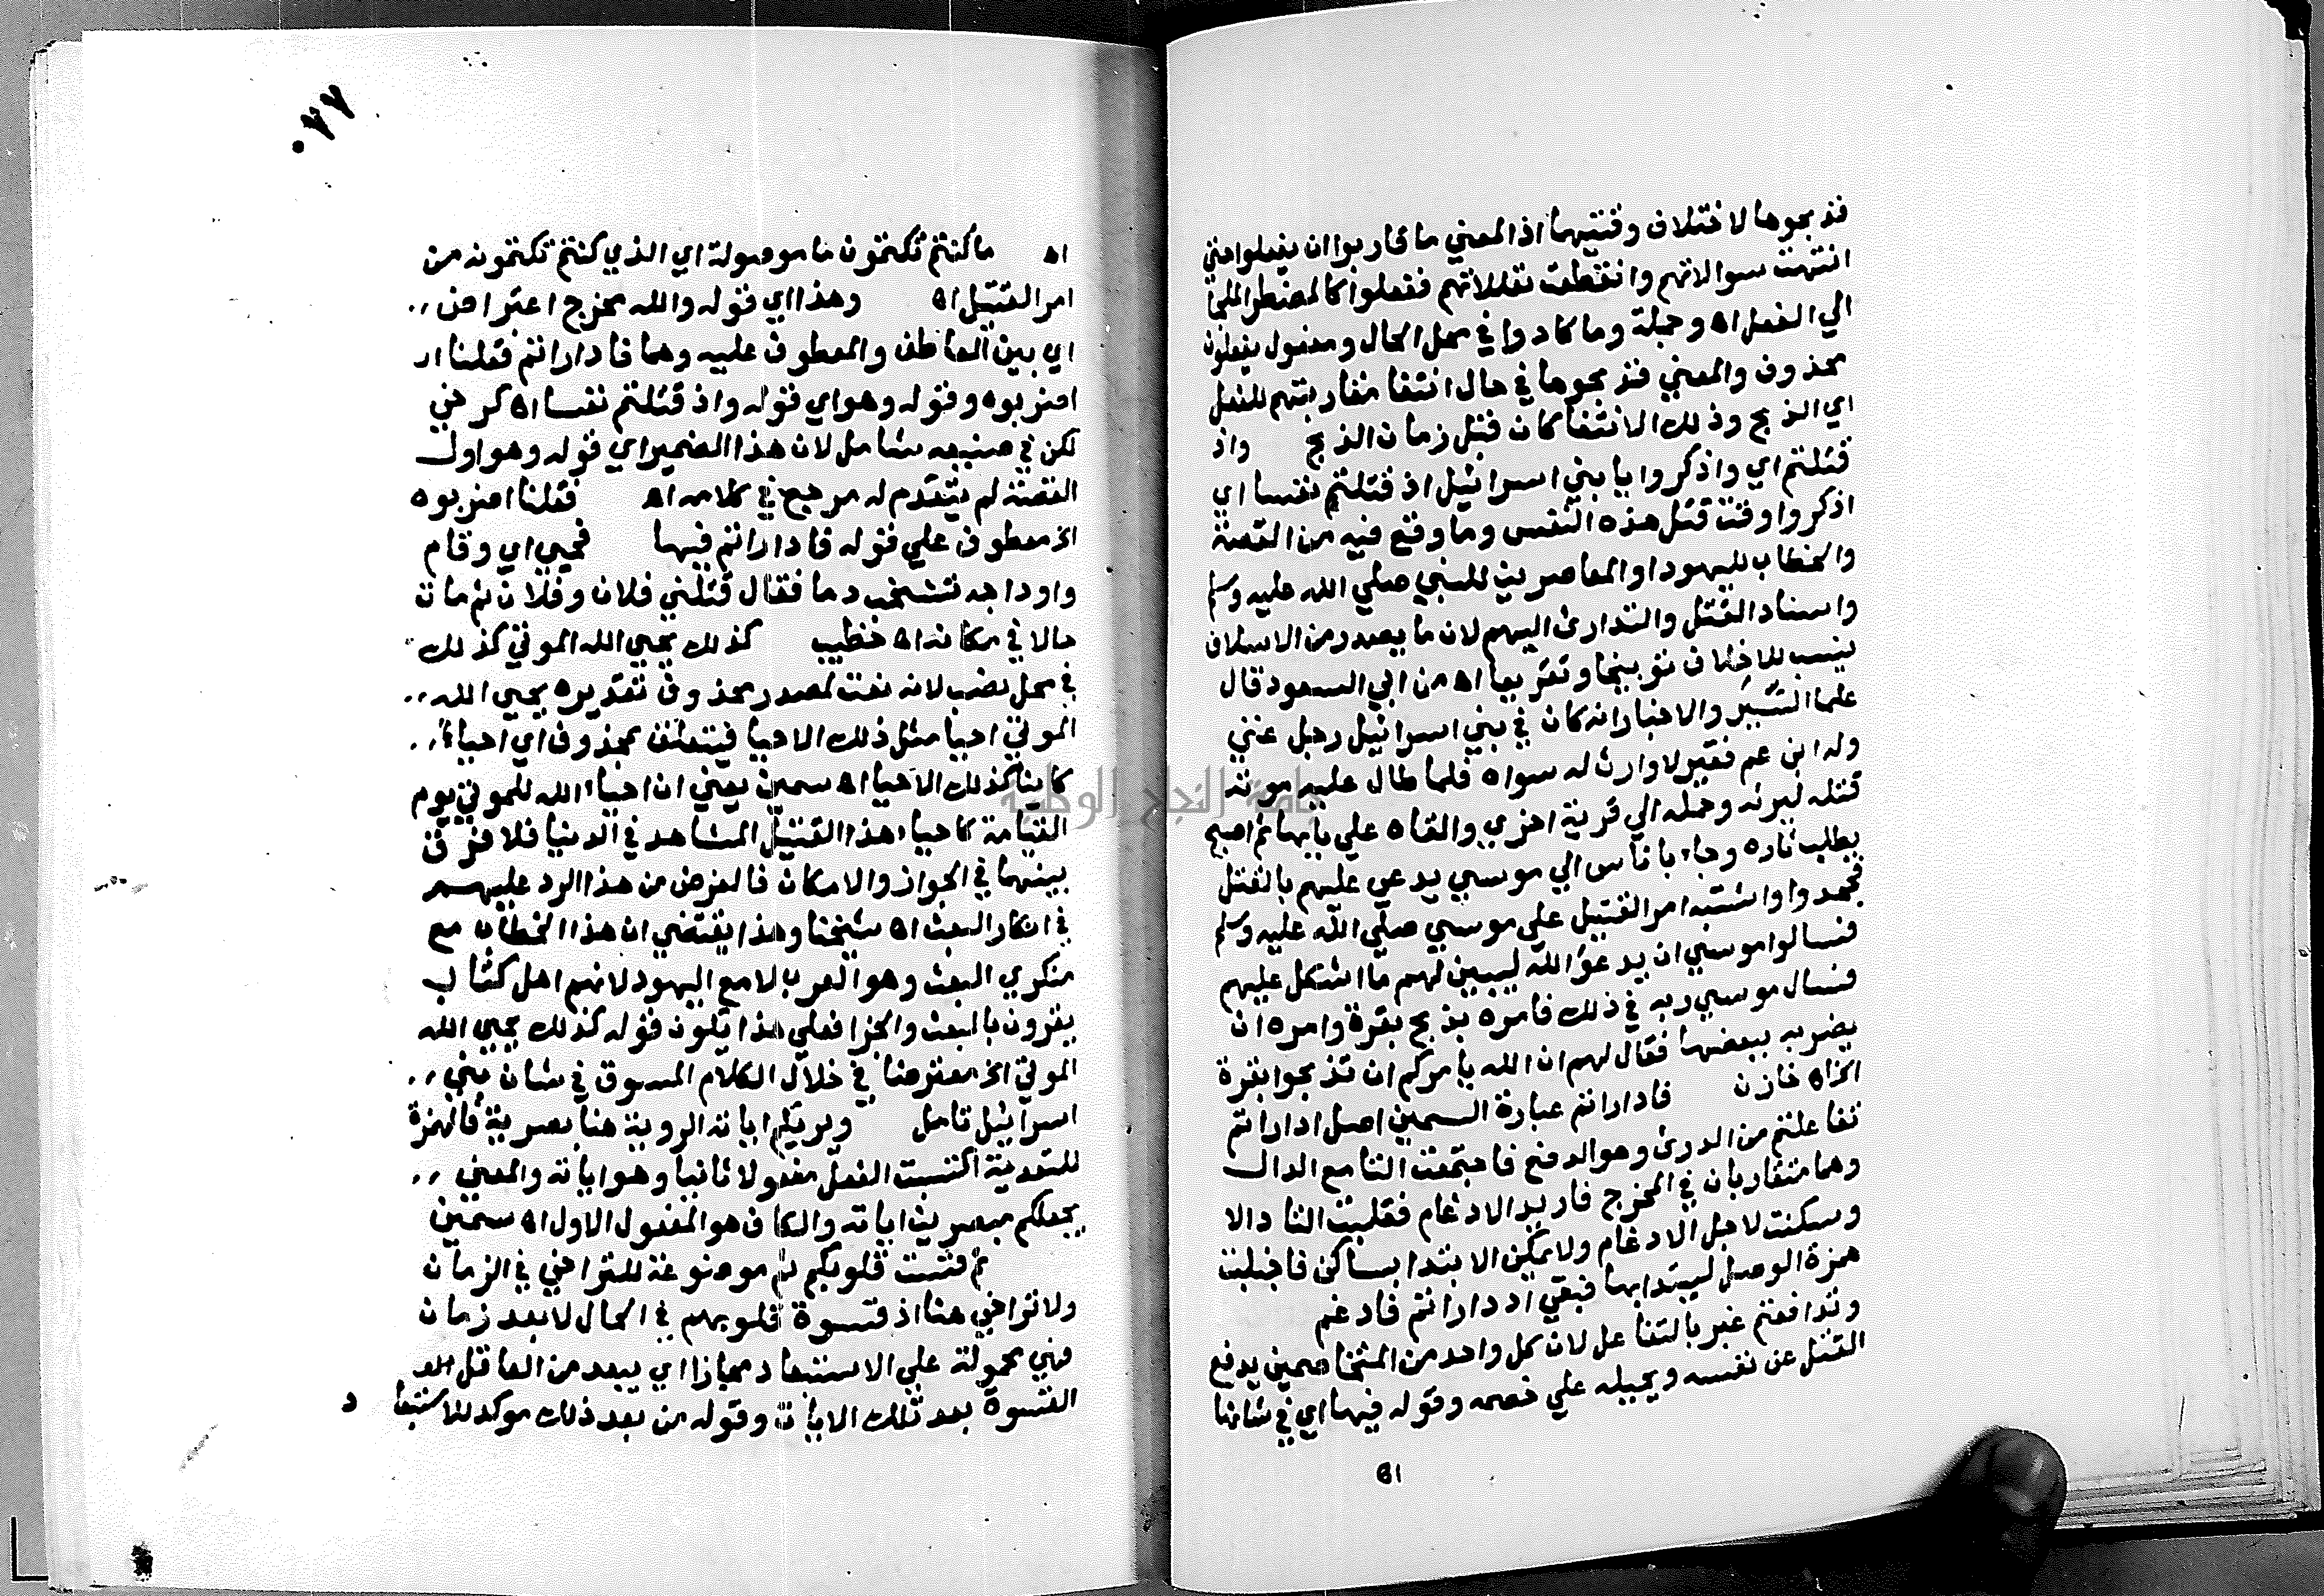 فذبحوها لاختلاف وقتيهما اذ المعني ما قاربوا ان يفعلوا حتي
انتهت سوالاتهم وانقطعت تعللاتهم ففعلوا كالمضطر الملجا
الي الفعل اه وجملة وما كادوا في محل الحال ومفعول يفعلون
محذوف والمعني فذبحوها في حال انتفا مقاربتهم للفعل
اي الذبح وذلك الانتفا كان قبل زمان الذبح واذ
قتلتم اي واذكروا يا بني اسرائيل اذ قتلتم نفسا اي
اذكروا وقت قتل هذه النفس وما وقع فيه من القصة
والخطاب لليهود او المعاصرين للنبي صلي الله عليه وسلم
واسناد القتل والتدارئ اليهم لان ما يصدر من الاسلاف
ينسب للاخلاف توبيخا وتقريعا اه من ابي السعود قال
علما السير والاخبار انه كان في بني اسرائيل رجل غني
وله ابن عم فقير لا وارث له سواه فلما طال عليه موته
قتله ليرثه وحمله الي قرية اخري والقاه علي بابها ثم اصبح
يطلب ثاره وجاء باناس الي موسي يدعي عليهم بالقتل
فجحدوا واشتبه امر القتيل علي موسي صلي الله عليه وسلم
فسالوا موسي ان يدعو الله ليبين لهم ما اشكل عليهم
فسال موسي ربه في ذلك فامره بذبح بقرة وامره ان
يضربه ببعضها فقال لهم ان الله يامركم ان تذبحوا بقرة
الخ اه خازن فادارأتم عبارة السمين اصل ادارأتم
تفاعلتم من الدرئ وهو الدفع فاجتمعت التا مع الدال
وهما متقاربان في المخرج فاريد الادغام فقلبت التا دالا
وسكنت لاجل الادغام ولا يمكن الابتدا بساكن فاجتلبت
همزة الوصل ليبتدا بها فبقي اددارأتم فادغم
وتدافعتم عبر بالتفاعل لان كل واحد من المتخاصمين يدفع
القتل عن نفسه ويحيله علي خصمه وقوله فيها اي في شانها
اه
٠٧٧
اه ما كنتم تكتمون ما موصولة اي الذي كنتم تكتمونه من
امر القتيل اه وهذا اي قوله والله مخرج اعتراض ،،
اي بين العاطف والمعطوف عليه وهما فادارأتم فقلنا ا
اضربوه وقوله وهو اي قوله واذ قتلتم نفسا اه كرخي
لكن في صنيعه تسامل لان هذا الضمير اي قوله وهو اول
القصة لم يتقدم له مرجع في كلامه اه فقلنا اضربوه
الخ معطوف علي قوله فادارأتم فيها فحيي اي وقام
واوداجه تشخب دما فقال قتلني فلان وفلان ثم مات
حالا في مكانه اه خطيب كذلك يحيي الله الموتي كذلك
في محل نصب لانه نعت لمصدر محذوف تقديره يحيي الله ،،
الموتي احيا مثل ذلك الاحيا فيتعلق بمحذوف اي احياء ،،
كاينا كذلك الاحيا اه سمين يعني ان احياء الله للموتي يوم
القيامة كاحياء هذا القتيل المشاهد في الدنيا فلا فرق
بينهما في الجواز والامكان فالغرض من هذا الرد عليهم
في انكار البعث اه شيخنا وهذا يقتضي ان هذا الخطاب مع
منكري البعث وهو العرب لا مع اليهود لانهم اهل كتاب
يقرون بالبعث والجزا فعلي هذا يكون قوله كذلك يحيي الله
الموتي الخ معترضا في خلال الكلام المسوق في شان بني ،،
اسرائيل تامل ويريكم اياته الروية هنا بصرية فالهمزة
للتعدية اكسبت الفعل مفعولا ثانيا وهو اياته والمعني ،،
يجعلكم مبصرين اياته والكاف هو المفعول الاول اه سمين
ثم قست قلوبكم ثم موضوعة للتراخي في الزمان
ولا تراخي هنا اذ قسوة قلوبهم في الحال لا بعد زمان
فهي محمولة علي الاستبعاد مجازا اي يبعد من العاقل
القسوة بعد تلك الايات وقوله من بعد ذلك موكد للاستبعاد
جامعة النجاح الوطنية